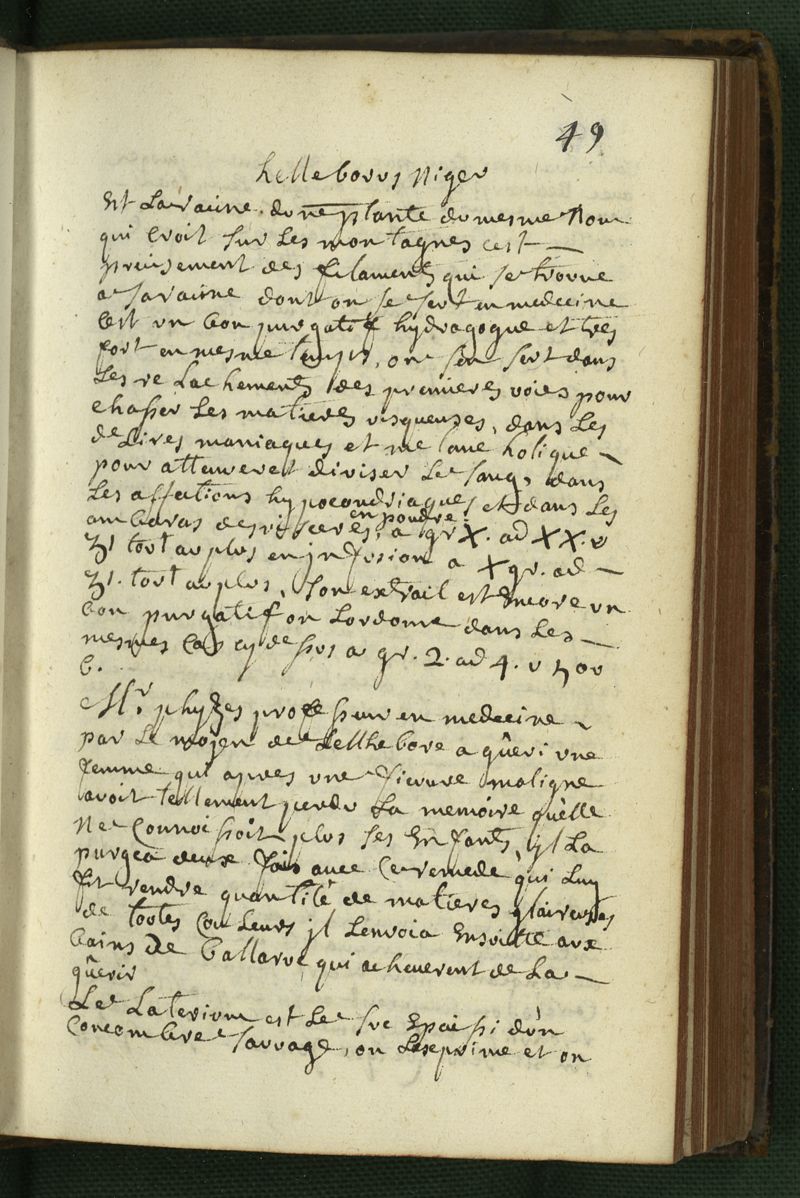 49
helleborus Niger
Est La racine d'une plante du mesme Nom
qui croit sur Les montagnes cest
precisement des filaments qui se trouve
a sa racine dont on se sert en medecine
Cest un bon purgatif hydragogue et tres
fort en mesme temps, on sen sert dans
Les relachements des premieres voies pour
chasser Les matieres visqueuses, dans Les
delires maniaques et melancholique
pour attenuer et diviser Le sang, dans
Les affections hypocondriaques et dans Les
ambaras des visceres, en poudre a gr X. ad XX. v
ʒı tout au plus en jnfusion a X gr. ad
ʒı. tout au plus, son extrait est Encore un
bon purgatif on Lordonne dans Les
mesmes Cas cy dessus a gr. 2. ad 4. v 5 ou
6.
Mr. phyzes professeur en medecine
par Le moyen de Lellhebore a guêri une
femme qui apres une fievre maligne
avoit tellement perdu La memoire quelle
Ne Connoissoit plus ses Enfants, jl La
purgea deux fois avec Ce remede, qui Luy
fit rendre quantité de matieres glaireuses
de toutes Couleurs jl Lenvoia Ensuitte aux
bains De ballaruc qui acheverent de La
guêrir
Le Laterium est Le suc Epaissi d'un
Concombre sauvage, on Lexprime et on